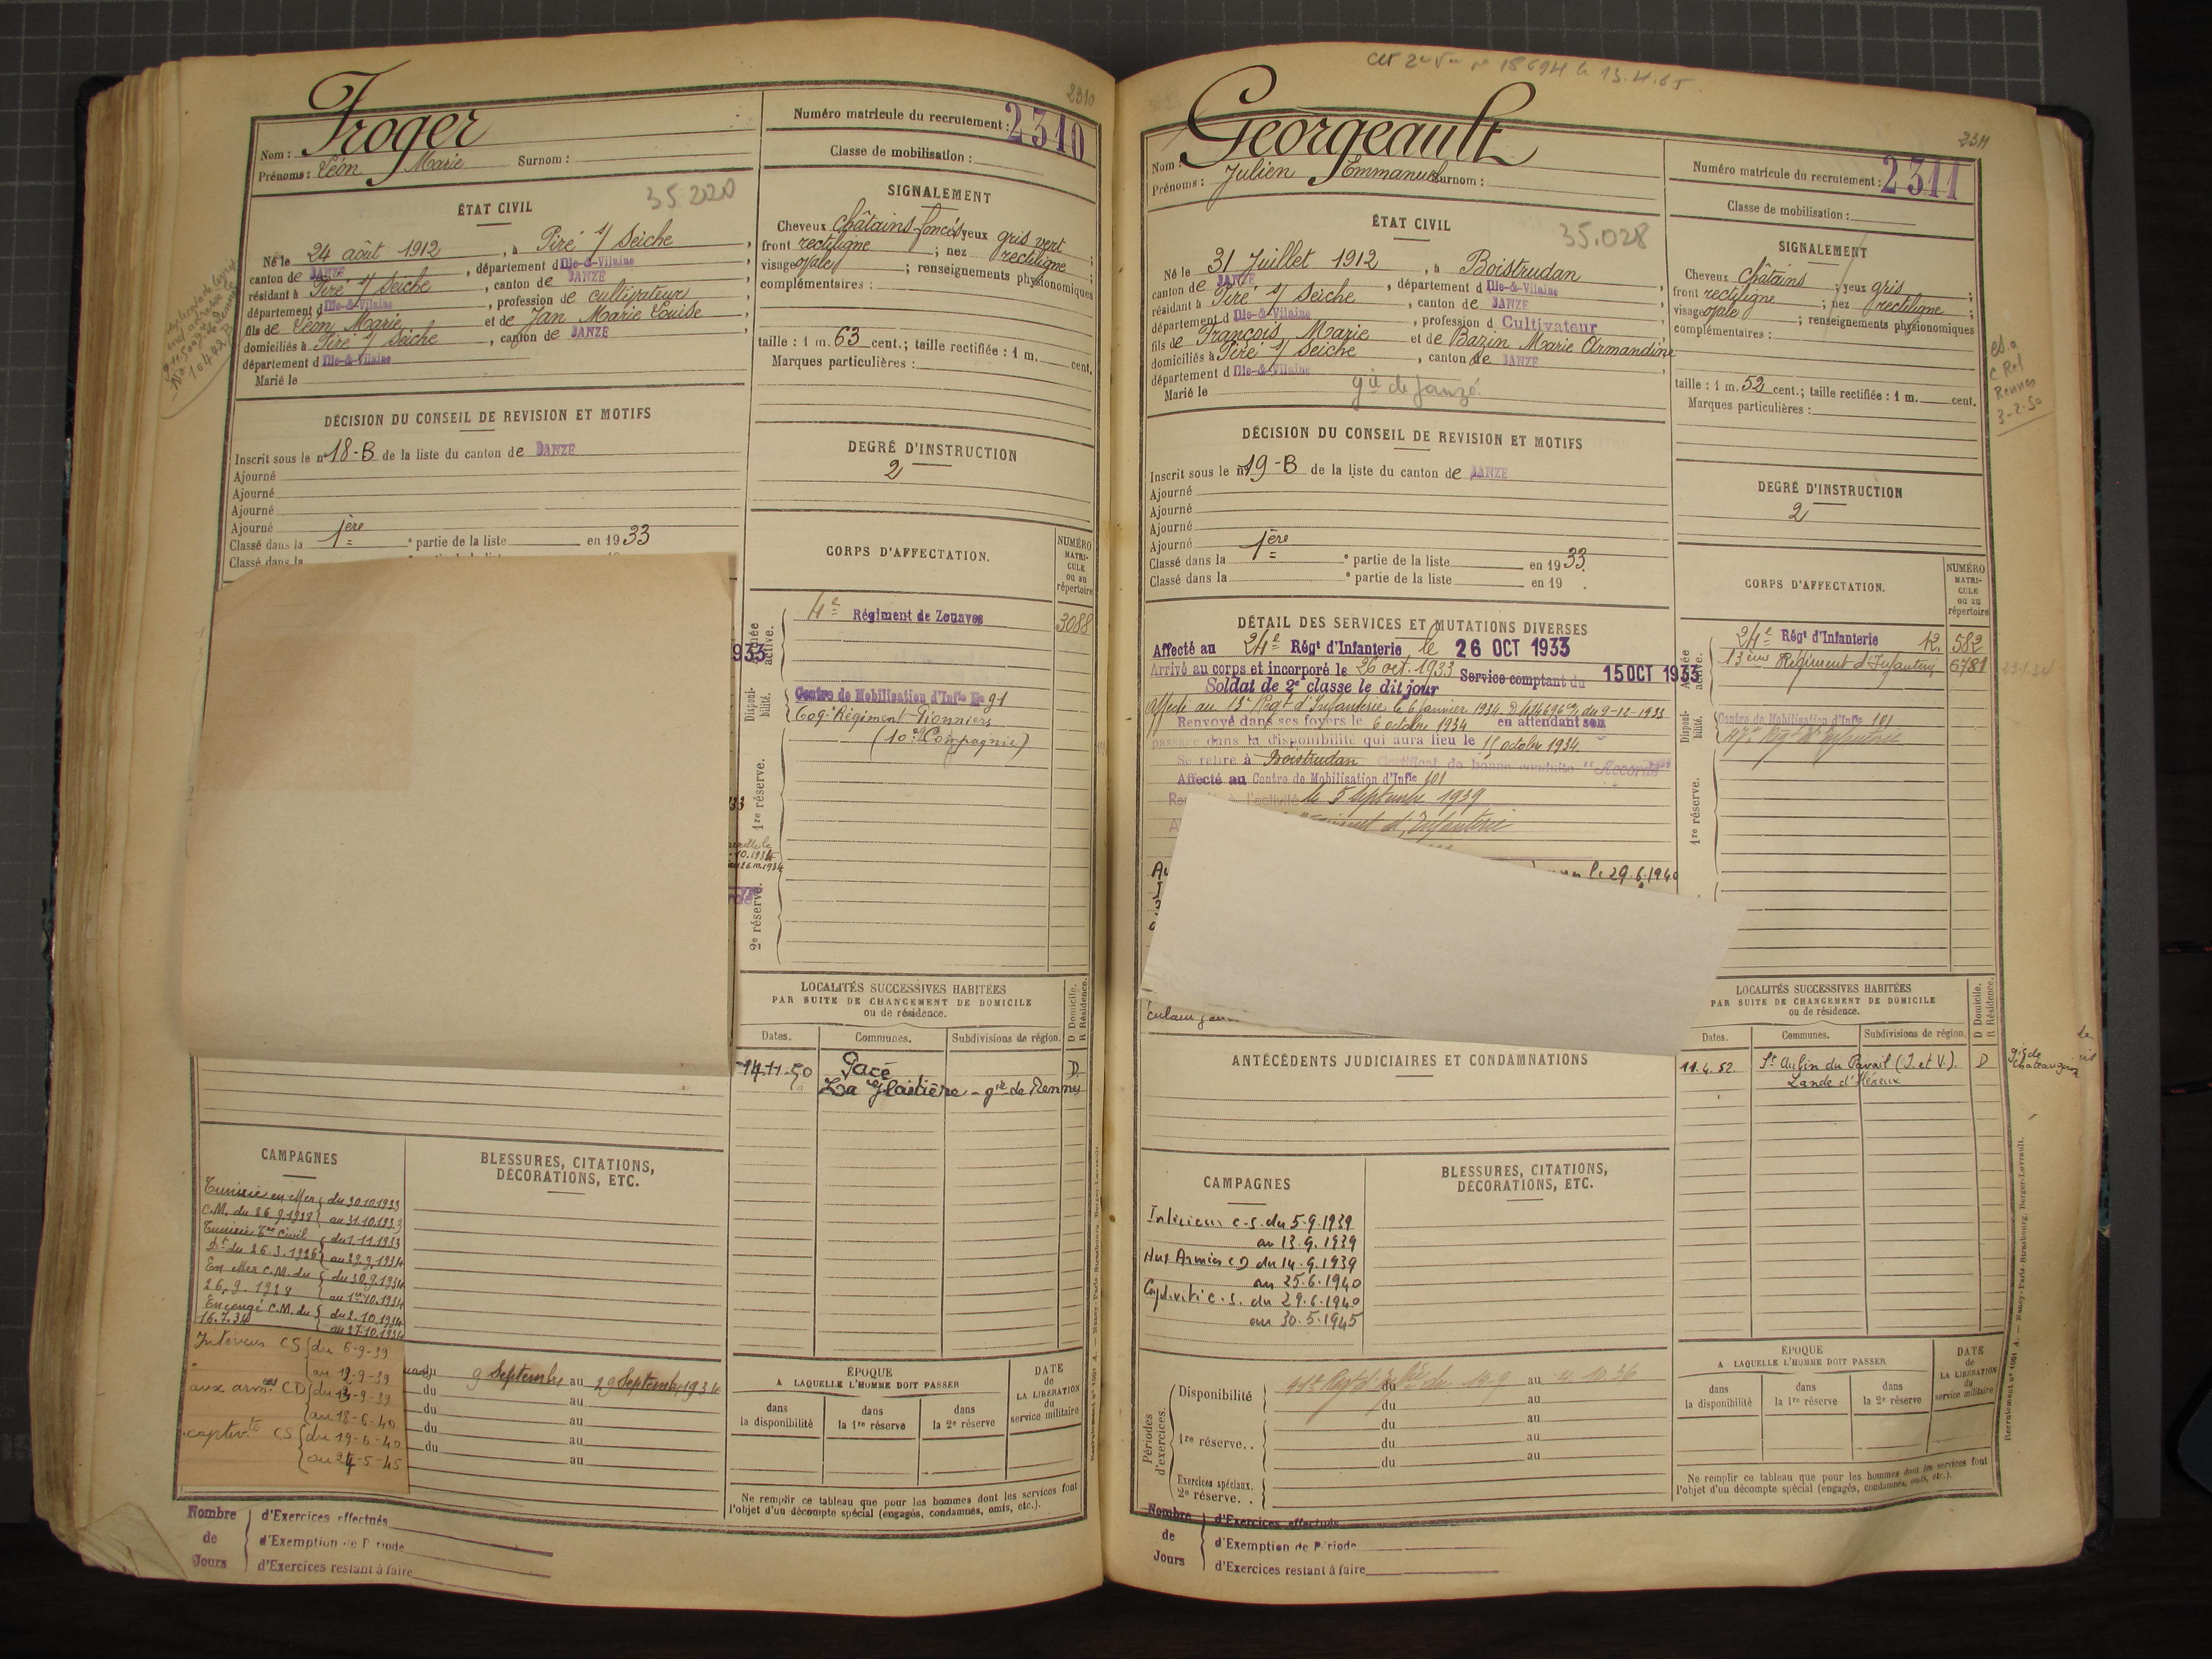 2310
Froger
Nom :
Prénoms : Léon Marie Surnom :
Numéro matricule du recrutement : 2310
Classe de mobilisation :
35.220
ÉTAT CIVIL
Né le 24 août 1912, à Piré s/ Seiche,
canton de JANZE, département d Ille-&-Vilaine
résidant à Piré s/ Seiche, canton de JANZE
département d Ille-&-Vilaine, profession de cultivateur
fils de Léon Marie et de Jan Marie Louise,
domiciliés à Piré s/ Seiche, canton de JANZE
département d Ille-&-Vilaine
Marié le
SIGNALEMENT
Cheveux châtains foncés yeux gris vert
front rectiligne ; nez rectiligne ;
visage ovale ; renseignements physionomiques
complémentaires :
taille : 1 m. 63 cent.; taille rectifiée : 1 m. cent.
Marques particulières :
DÉCISION DU CONSEIL DE REVISION ET MOTIFS
Inscrit sous le n° 18-B de la liste du canton de JANZE
Ajourné
Ajourné
Ajourné
Ajourné
Classé dans la 1ère partie de la liste en 1933
Classé dans la
DEGRÉ D'INSTRUCTION
2
CORPS D'AFFECTATION.
NUMÉRO MATRI-CULE ou au répertoire
Armée active.
4e Régiment de Zouaves 3088
933
Disponi-bilité.
Centre de Mobilisation d'Infie No 91
609e Régiment Pionniers
(10e Compagnie)
1re réserve.
2e réserve.
LOCALITÉS SUCCESSIVES HABITÉES
PAR SUITE DE CHANGEMENT DE DOMICILE
ou de résidence.
Dates. Communes. Subdivisions de région. D Domicile. R Résidence.
14-11-50 Pacé D
La Glaitière - gie de Rennes
CAMPAGNES
Tunisie en Mer du 30.10.1933
C.M. du 26.9.1928 au 31.10.1933
Tunisie Tre Civil du 1.11.1933
Dt du 26.3.1926 au 29.9.1934
En Mer C.M. du du 30.9.1934
26.9.1928 au 1er.10.1934
En congé C.M. du du 2.10.1934
16.7.34 au 27.10.1934
Interieur CS du 6-9-39
au 12-9-39
aux armées CD du 13-9-39
au 18-6-40
captivité CS du 19-6-40
au 24-5-45
BLESSURES, CITATIONS,
DÉCORATIONS, ETC.
du 9 Septembre au 29 Septembre 1934
du au
du au
du au
du au
ÉPOQUE
A LAQUELLE L'HOMME DOIT PASSER
DATE de LA LIBÉRATION du service militaire
dans la disponibilité dans la 1re réserve dans la 2e réserve
Ne remplir ce tableau que pour les hommes dont les services font
l'objet d'un décompte spécial (engagés, condamnés, omis, etc.).
Nombre de Jours
d'Exercices effectués
d'Exemption de Période
d'Exercices restant à faire
2311
Georgeault
Nom :
Prénoms : Julien Emmanuel Surnom :
Numéro matricule du recrutement : 2311
Classe de mobilisation :
35.028
ÉTAT CIVIL
Né le 31 Juillet 1912, à Boistrudan
canton de JANZE, département d Ille-&-Vilaine
résidant à Piré s/ Seiche, canton de JANZE
département d Ille-&-Vilaine, profession d Cultivateur
fils de François Marie et de Bazin Marie Armandine
domiciliés à Piré s/ Seiche, canton de JANZE
département d Ille-&-Vilaine
Marié le
gie de Janzé.
SIGNALEMENT
Cheveux châtains ; yeux gris ;
front rectiligne ; nez rectiligne
visage ovale ; renseignements physionomiques
complémentaires :
taille : 1 m. 52 cent.; taille rectifiée : 1 m. cent.
Marques particulières :
Rennes
3-2-50
DÉCISION DU CONSEIL DE REVISION ET MOTIFS
Inscrit sous le n° 19-B de la liste du canton de JANZE
Ajourné
Ajourné
Ajourné
Ajourné
Classé dans la 1ère partie de la liste en 1933.
Classé dans la partie de la liste en 19 .
DEGRÉ D'INSTRUCTION
2
DÉTAIL DES SERVICES ET MUTATIONS DIVERSES
Affecté au 24e Régt d'Infanterie le 26 OCT 1933
Arrivé au corps et incorporé le 26 oct. 1933 Service comptant du 15 OCT 1933
Soldat de 2e classe le dit jour
Affecté au 13e Régt d'Infanterie le 6 Janvier 1934 du 9-12-1933
Renvoyé dans ses foyers le 6 octobre 1934 en attendant son
passage dans la disponibilité qui aura lieu le 15 octobre 1934
Se retire à Boistrudan Certificat de bonne conduite "Accordé"
Affecté au Centre de Mobilisation d'Infie 101
à l'activité le 5 septembre 1939
d'Infanterie
le 29.6.1940
CORPS D'AFFECTATION.
NUMÉRO MATRI-CULE ou au répertoire
Armée active.
24e Régt d'Infanterie 582
13ème Régiment d'Infanterie 6781
Disponi-bilité.
Centre de Mobilisation d'Infie 101
1re réserve.
ANTÉCÉDENTS JUDICIAIRES ET CONDAMNATIONS
LOCALITÉS SUCCESSIVES HABITÉES
PAR SUITE DE CHANGEMENT DE DOMICILE
ou de résidence.
Dates. Communes. Subdivisions de région. D Domicile. R Résidence.
11.4.52 St Aubin du Pavail (I. et V.). D
CAMPAGNES
Intérieur c.s. du 5.9.1939
au 13.9.1939
Aux Armées CD du 14.9.1939
au 25.6.1940
Captivité c.s. du 29.6.1940
au 30.5.1945
BLESSURES, CITATIONS,
DÉCORATIONS, ETC.
Périodes d'exercices.
Disponibilité du au
du au
1re réserve.. du au
du au
du au
Exercices spéciaux.
2e réserve. .
ÉPOQUE
A LAQUELLE L'HOMME DOIT PASSER
DATE de LA LIBÉRATION du service militaire
dans la disponibilité dans la 1re réserve dans la 2e réserve
Ne remplir ce tableau que pour les hommes dont les services font
l'objet d'un décompte spécial (engagés, condamnés, omis, etc.).
Nombre de Jours
d'Exercices effectués
d'Exemption de Période
d'Exercices restant à faire